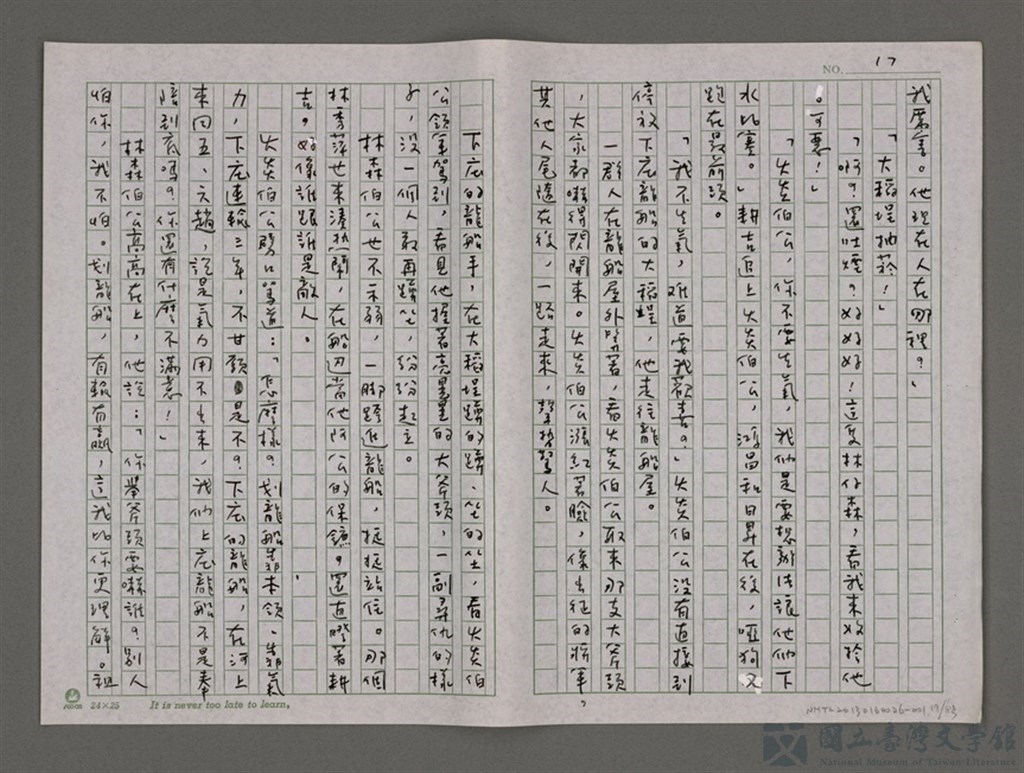 NO. 17
我厲害。他現在人在哪裡?」
「大稻埕抽菸!」
「啊?還吐煙?好好好!這隻林仔森,看我來收拾他
。可惡!」
「火炎伯公,你不要生氣,我們是要想辦法讓他們下
水比賽。」耕吉追上火炎伯公,鴻昌和日昇在後,啞狗又
跑在最前頭。
「我不生氣,难道要我歡喜?」火炎伯公沒有直接到
停放下庄龍船的大稻埕,他走往龍船屋。
一群人在龍船屋外等著,看火炎伯公取來那支大斧頭
,大家都嚇得閃開來。火炎伯公漲紅著臉,像出征的將軍,
其他人尾隨在後,一路走來,聲勢驚人。
下庄的龍船手,在大稻埕蹲的蹲、坐的坐,看火炎伯
公領軍駕到,看見他握著亮晃晃的大斧頭,一副尋仇的樣
子,沒一個人敢再蹲坐,紛紛起立。
林森伯公也不示弱,一腳跨進龍船,挺挺站住。那個
林秀萍也來湊熱鬧,在船边當他阿公的保鏢,還直瞪著耕
吉,好像誰跟誰是敵人。
火炎伯公劈口罵道:「怎麼樣?划龍船靠本領、靠氣
力,下庄連輸三年,不甘願是不?下庄的龍船,在河上
來回五、六趟,說是氣力用不出來,我們上庄龍船不是奉
陪到底嗎?你還有什麼不滿意!」
林森伯公高高在上,他說:「你舉斧頭要嚇誰?別人
怕你,我不怕。划龍船,有輸有贏,這我比你更理解。祖
24×25 It is never too late to learn.
NMTL20130160026-001.17/53
國立臺灣文學館
National Museum of Taiwan Literature